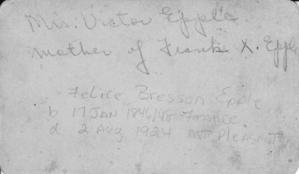 Mrs. Victor Epple
mother of Frank X. Epple
Felice Bresson Epple
b 17 Jan 1846/48 France
d 2 Aug 1924 Mt Pleasant